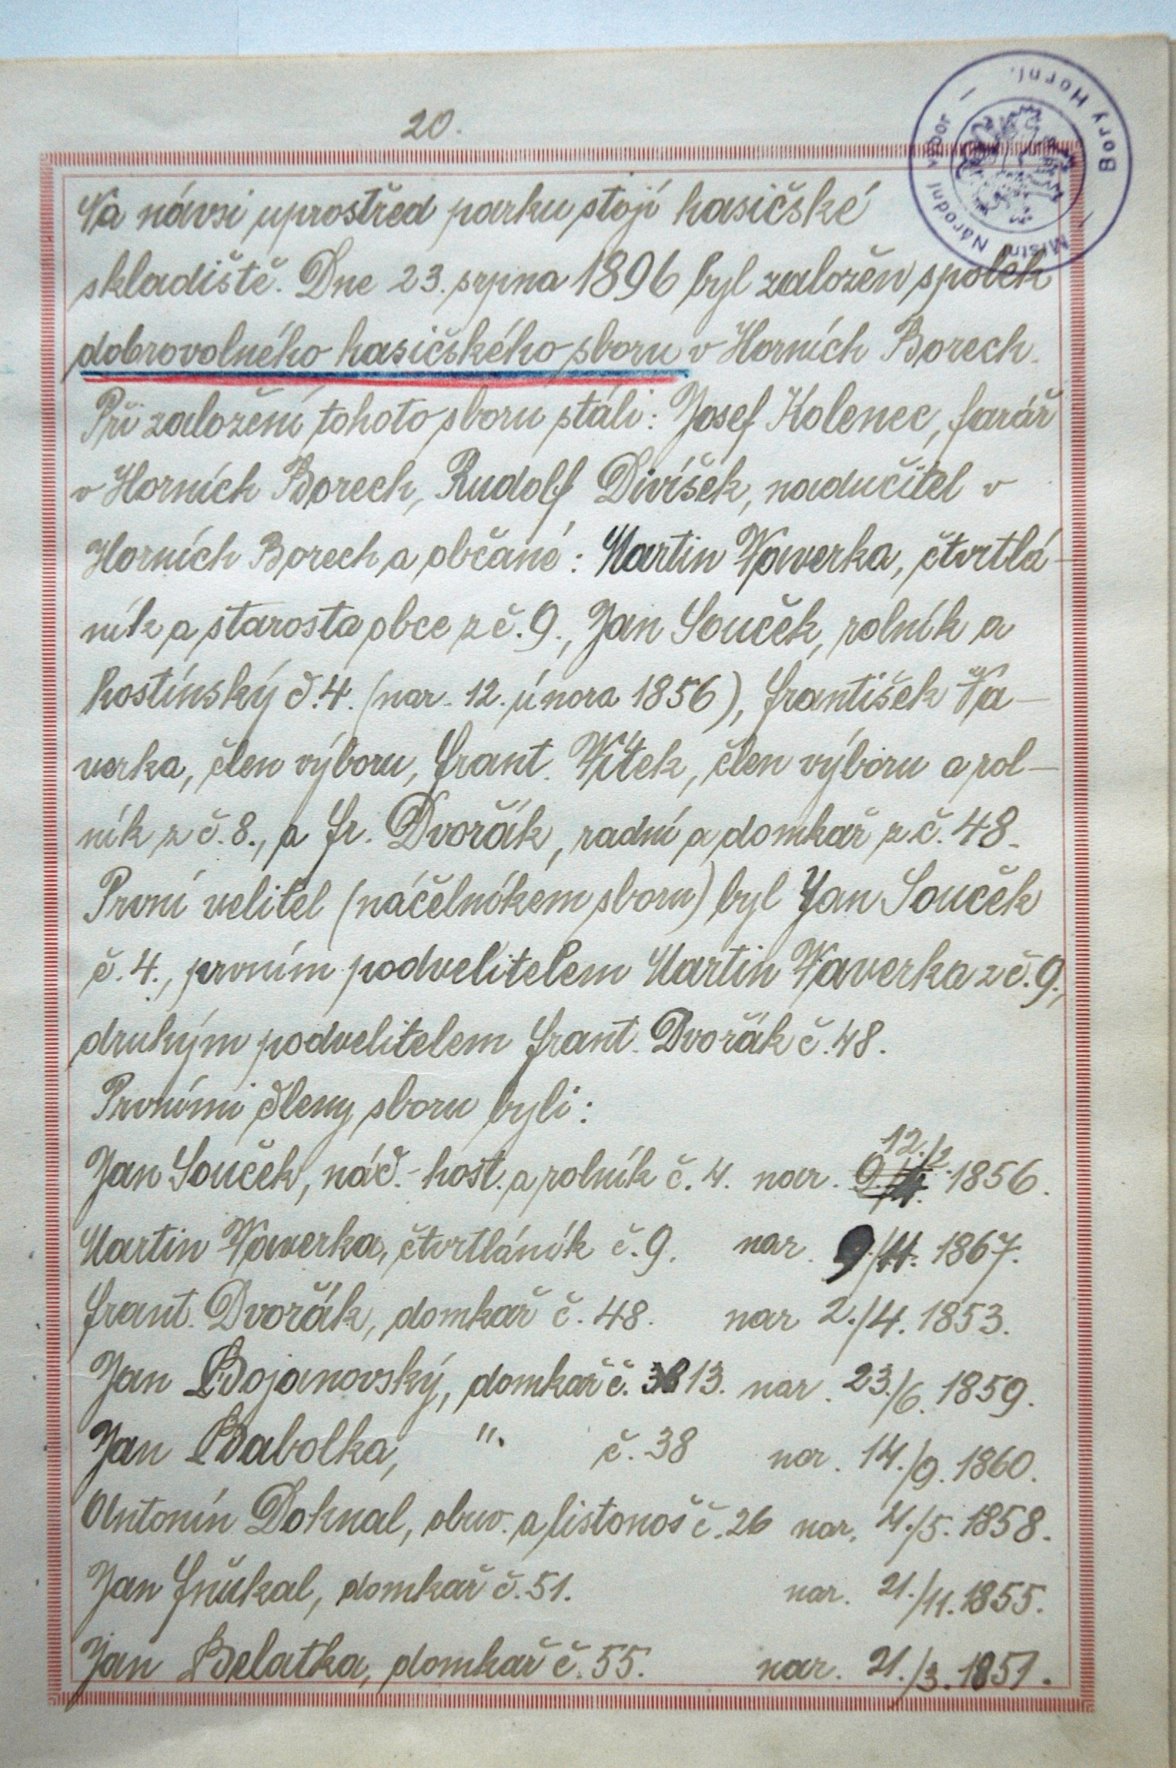 20.
Místní Národní výbor - Bory Horní. -
Na návsi uprostřed parku stojí hasičské
skladiště. Dne 23. srpna 1896 byl založen spolek
dobrovolného hasičského sboru v Horních Borech.
Při založení tohoto sboru stáli: Josef Kolenec, farář
v Horních Borech, Rudolf Divíšek, nadučitel v
Horních Borech a občané: Martin Waverka, čtvrtlá-
ník a starosta obce z č. 9., Jan Souček, rolník a
hostínský č. 4. (nar. 12. února 1856), František Va-
verka, člen výboru, Frant. Vítek, člen výboru a rol-
ník z č. 8., a Fr. Dvořák, radní a domkař z č. 48.
První velitel (náčelníkem sboru) byl Jan Souček
č. 4., prvním podvelitelem Martin Waverka z č. 9.,
druhým podvelitelem Frant. Dvořák č. 48.
Prvními členy sboru byli:
Jan Souček, náč.- host. a rolník č. 4. nar. 12./2. 1856.
Martin Waverka, čtvrtláník č. 9. nar. 9./11. 1867.
Frant. Dvořák, domkař č. 48. nar 2./4. 1853.
Jan Bojanovský, domkař č. 13. nar. 23./6. 1859.
Jan Babolka, " č. 38 nar. 14./9. 1860.
Antonín Doknal, obuv. a listonoš č. 26 nar. 4./5. 1858.
Jan Fňukal, domkař č. 51. nar. 21./11. 1855.
Jan Belatka, domkař č. 55. nar. 21./3. 1851.